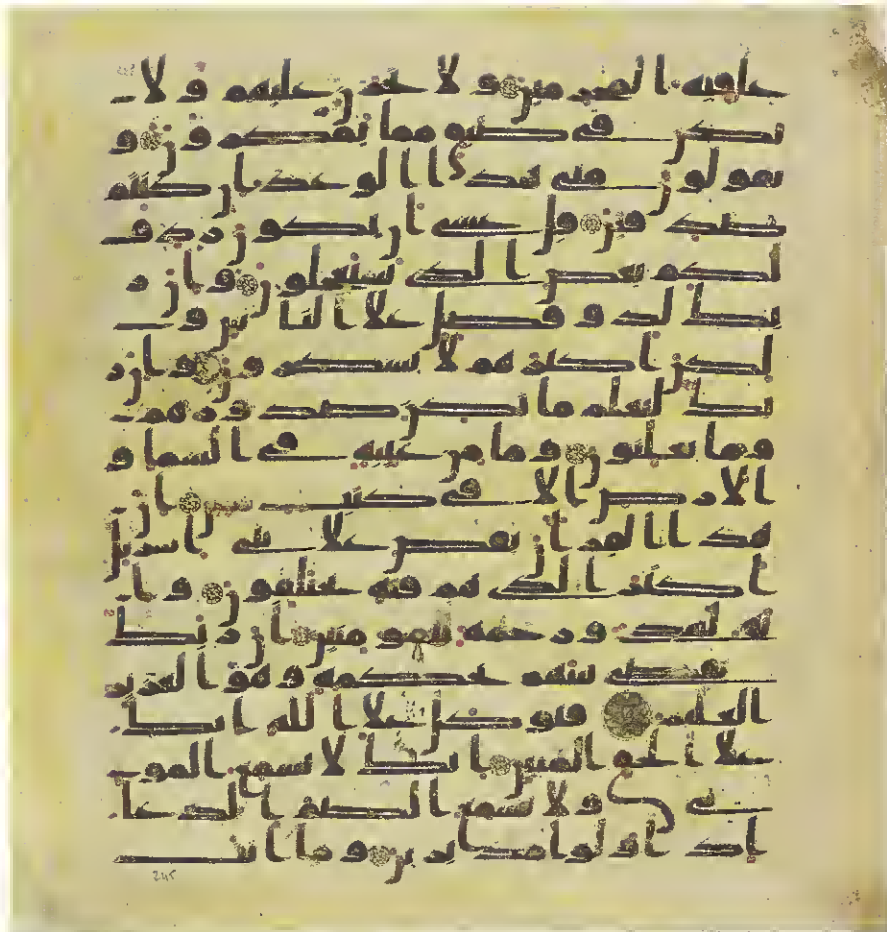 عقبة المجرمين ولا تحزن عليهم ولا
تكن في ضيق مما يمكرون و
يقولون متى هذا الوعد ان كنتم
صدقين قل عسى ان يكون ردف
لكم بعض الذي تستعجلون وان ر
بك لذو فضل على الناس و
لكن اكثرهم لا يشكرون وان ر
بك ليعلم ما تكن صدورهم
وما يعلنون وما من غيبة في السما و
الارض الا في كتب مبين ان
هذا القران يقص على بني اسريل
اكثر الذي هم فيه يختلفون وا
نه لهدى ورحمة للمومنين ان ربك
يقضي بينهم بحكمه وهو العزيز
العليم فتوكل على الله انك
على الحق المبين انك لا تسمع المو
تى ولا تسمع الصم الدعا
اذا ولوا مدبرين وما انت
245